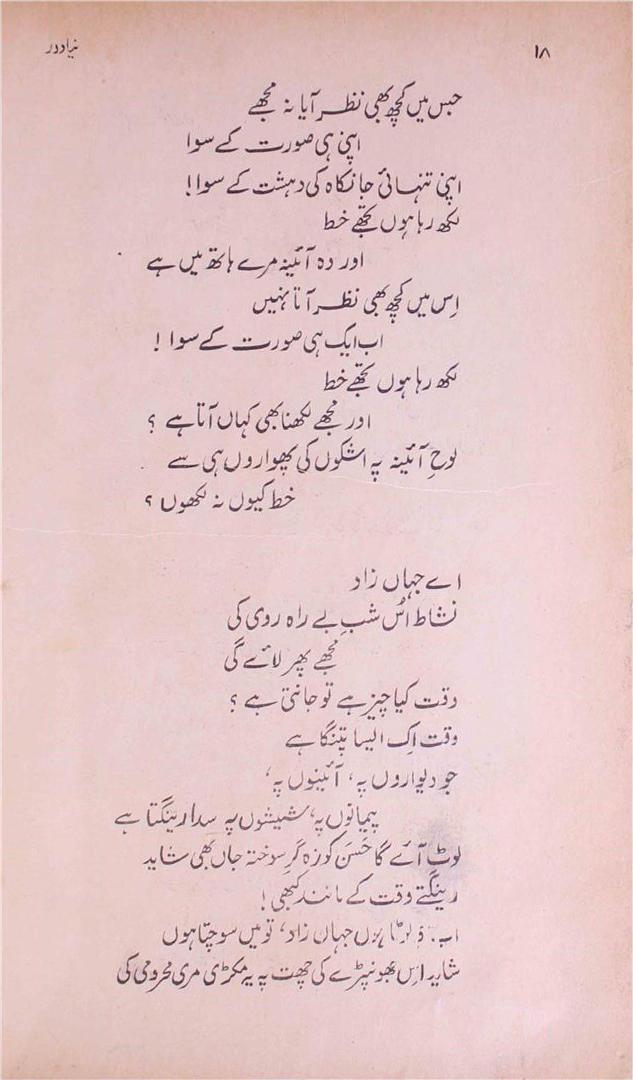 ۱۸
نیا دور
جس میں کچھ بھی نظر آیا نہ مجھے
اپنی ہی صورت کے سوا
اپنی تنہائی جانکاہ کی دہشت کے سوا!
لکھ رہا ہوں تجھے خط
اور وہ آئینہ مرے ہاتھ میں ہے
اِس میں کچھ بھی نظر آتا نہیں
اب ایک ہی صورت کے سوا!
لکھ رہا ہوں تجھے خط
اور مجھے لکھنا بھی کہاں آتا ہے؟
لوحِ آئینہ پہ اشکوں کی پھواروں ہی سے
خط کیوں نہ لکھوں؟
اے جہاں زاد
نشاط اُس شبِ بے راہ روی کی
مجھے پھر لائے گی
وقت کیا چیز ہے تو جانتی ہے؟
وقت اِک ایسا پتنگا ہے
جو دیواروں پہ، آئینوں پہ،
پیمانوں پہ، شیشوں پہ سدا رینگتا ہے
لوٹ آئے گا حَسَن کوزہ گرِ سوختہ جاں بھی شاید
رینگتے وقت کے مانند کبھی!
اب ہوں جہاں زاد، تو میں سوچتا ہوں
شاید اس جھونپڑے کی چھت پہ یہ مکڑی مری محرومی کی